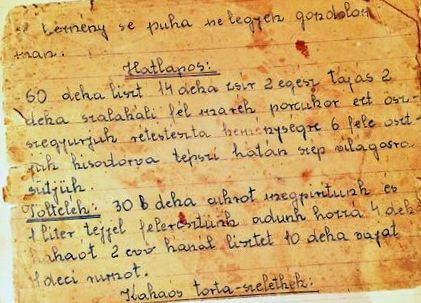 kemény se puha ne legyen gondolom
man.
Hatlapos:
60 deka liszt 14 deka zsir 2 egesz tojás 2
deka szalakáli fél marék porcukor ezt ösz
szegyurjuk retestészta keménységre 6 fele oszt
juk kisodorva tepszi hatán szep világosra
sütjük.
Töltelék: 30 deka cukrot megpiritunk és
1 liter tejjel feleresztünk adunk hozzá 4 deka
kakaót 2 evő kanál lisztet 10 deka vajat
1 deci rumot.
Kakaos torta-szeletkek: